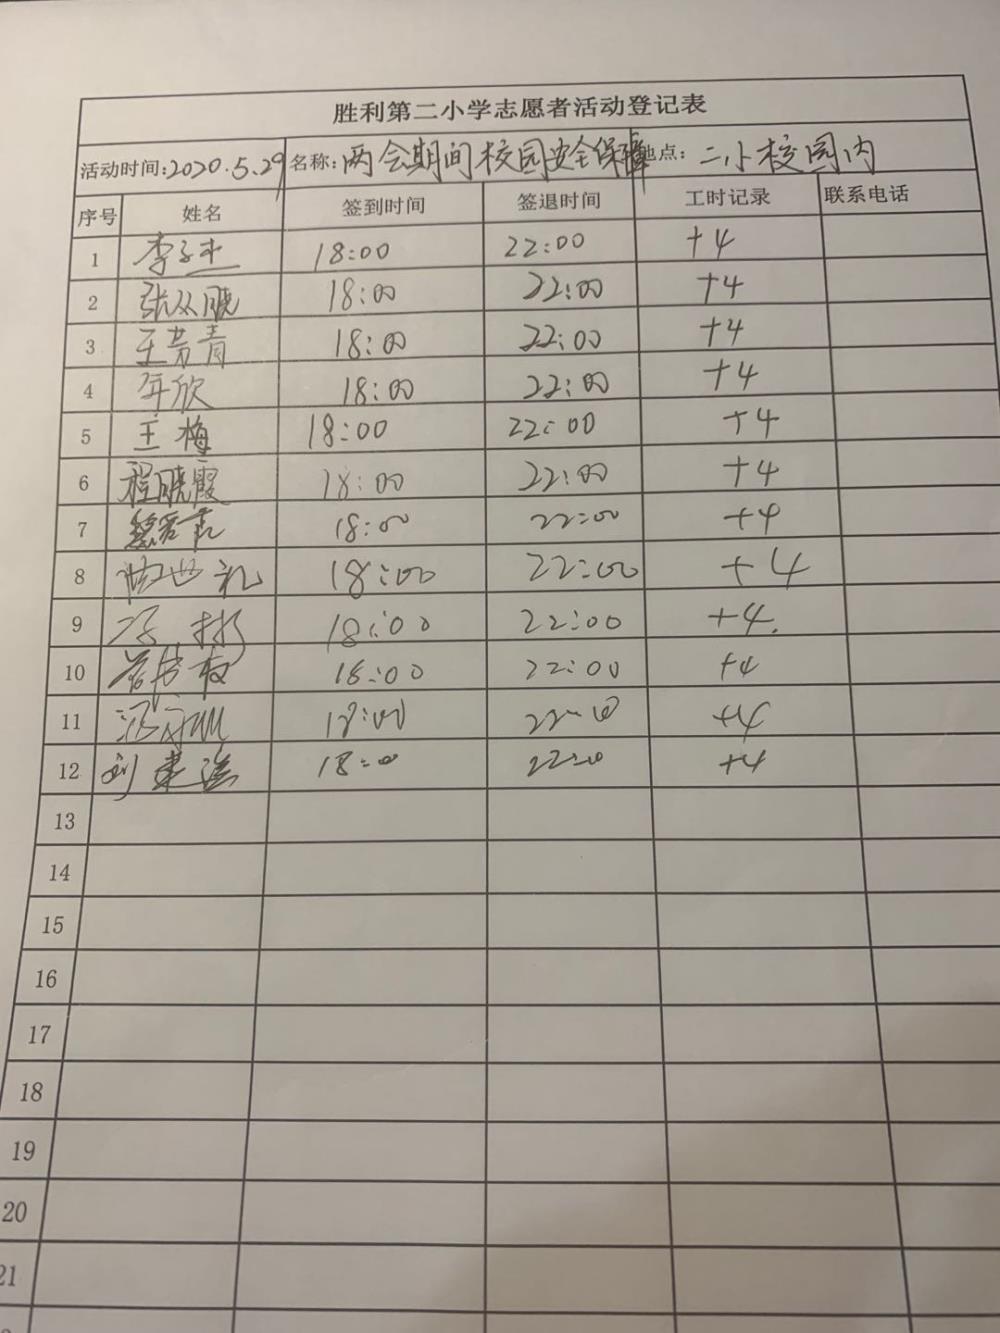 胜利第二小学志愿者活动登记表
活动时间:2020.5.29 名称:两会期间校园安全保障 地点:二小校园内
序号 姓名 签到时间 签退时间 工时记录 联系电话
1 李子杰 18:00 22:00 +4
2 张从晓 18:00 22:00 +4
3 王芳青 18:00 22:00 +4
4 年欣 18:00 22:00 +4
5 王梅 18:00 22:00 +4
6 程晓霞 18:00 22:00 +4
7 18:00 22:00 +4
8 18:00 22:00 +4
9 18:00 22:00 +4.
10 18:00 22:00 +4
11 18:00 22:00 +4
12 刘建 18:00 22:00 +4
13
14
15
16
17
18
19
20
21